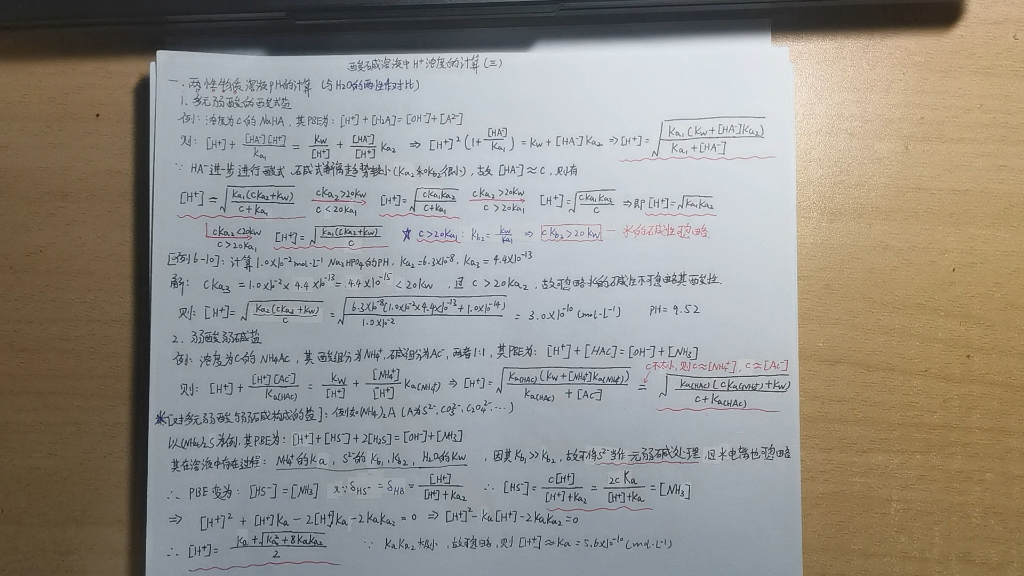 酸碱溶液中H⁺浓度的计算(三)
一、两性物质溶液PH的计算 (与H₂O的两性作对比)
1. 多元弱酸的酸式盐
例: 浓度为C的NaHA, 其PBE为: [H⁺]+[H₂A]=[OH⁻]+[A²⁻]
则: [H⁺]+ [HA⁻][H⁺]/Ka₁ = Kw/[H⁺] + [HA⁻]/[H⁺] Ka₂ ⇒ [H⁺]²(1+[HA⁻]/Ka₁)=Kw+[HA⁻]Ka₂ ⇒ [H⁺]=√(Ka₁(Kw+[HA⁻]Ka₂)/(Ka₁+[HA⁻]))
∵ HA⁻进一步进行酸式、碱式解离趋势较小(Ka₂和Kb₂很小), 故 [HA⁻]≈C, 则有
[H⁺]=√(Ka₁(CKa₂+Kw)/(C+Ka₁)) CKa₂>20Kw C<20Ka₁ [H⁺]=√(CKa₁Ka₂/(C+Ka₁)) CKa₂>20Kw C>20Ka₁ [H⁺]=√(CKa₁Ka₂/C) ⇒即[H⁺]=√(Ka₁Ka₂)
CKa₂<20Kw C>20Ka₁ [H⁺]=√(Ka₁(CKa₂+Kw)/C) ★ C>20Ka₁: Kb₂=Kw/Ka₁ ⇒ CKb₂>20Kw — 水的碱性可忽略
[例6-10]: 计算1.0×10⁻²mol·L⁻¹ Na₂HPO₄的PH, Ka₂=6.3×10⁻⁸, Ka₃=4.4×10⁻¹³
解: CKa₃=1.0×10⁻²×4.4×10⁻¹³=4.4×10⁻¹⁵<20Kw, 且 C>20Ka₂, 故可忽略水的碱性不可忽略其酸性.
则: [H⁺]=√(Ka₂(CKa₃+Kw)/C) =√(6.3×10⁻⁸(1.0×10⁻²×4.4×10⁻¹³+1.0×10⁻¹⁴)/1.0×10⁻²) = 3.0×10⁻¹⁰(mol·L⁻¹) PH=9.52
2. 弱酸弱碱盐
例: 浓度为C的NH₄Ac, 其酸组分为NH₄⁺, 碱组分为Ac⁻, 两者1:1, 其PBE为: [H⁺]+[HAc]=[OH⁻]+[NH₃]
C不太小, 则C≈[NH₄⁺], C≈[Ac⁻]
则: [H⁺]+ [H⁺][Ac⁻]/Ka(HAc) = Kw/[H⁺] + [NH₄⁺]/[H⁺] Ka(NH₄⁺) ⇒ [H⁺]=√(Ka(HAc)(Kw+[NH₄⁺]Ka(NH₄⁺))/(Ka(HAc)+[Ac⁻])) = √(Ka(HAc)(CKa(NH₄⁺)+Kw)/(C+Ka(HAc)))
★[对多元弱酸与弱碱构成的盐]: 例如(NH₄)₂A (A为S²⁻, CO₃²⁻, C₂O₄²⁻…)
以(NH₄)₂S为例, 其PBE为: [H⁺]+[HS⁻]+2[H₂S]=[OH⁻]+[NH₃]
其在溶液中存在过程: NH₄⁺的Ka, S²⁻的Kb₁, Kb₂, H₂O的Kw, 因其Kb₁≫Kb₂, 故可将S²⁻当作一元弱碱处理, 且水电离也可忽略
∴ PBE变为: [HS⁻]=[NH₃] 又∵δHS⁻=δHB=[H⁺]/([H⁺]+Ka₂) ∴ [HS⁻]=C[H⁺]/([H⁺]+Ka₂)=2CKa/([H⁺]+Ka)=[NH₃]
⇒ [H⁺]²+[H⁺]Ka-2[H⁺]Ka-2KaKa₂=0 ⇒ [H⁺]²-Ka[H⁺]-2KaKa₂=0
∴ [H⁺]=(Ka+√(Ka²+8KaKa₂))/2 ∵ KaKa₂较小, 故可忽略, 则 [H⁺]≈Ka=5.6×10⁻¹⁰(mol·L⁻¹)